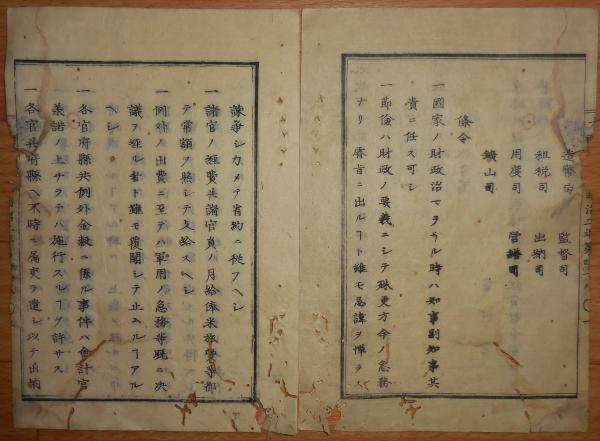 造幣局　監督司
租税司　出納司
用度司　営繕司
鑛山司
條令
一國家ノ財政治マラサル時ハ知事副知事其
責ニ任ス可シ
一節儉ハ財政ノ要義ニシテ殊更方今ノ急務
ナリ 出ルヿト雖モ忌諱ヲ憚ラス
諫争シカメテ省約ニ從フヘシ
一諸官ノ經費其諸官員ノ月給俸米旅営等都
テ常額ヲ照シテ支給スヘシ
一例外ノ出費ニ至テハ軍用ノ急務華既ニ决
議ヲ經ル者ト雖モ覆聞シテ止ムルヿアル
ヘシ
一各官府縣共例外金穀ニ係ル事件ハ會計官
ノ上ナラテハ施行スルヿヲ許サス
一各官共府縣ヘ不時ニ属吏ヲ遣シ以テ出納